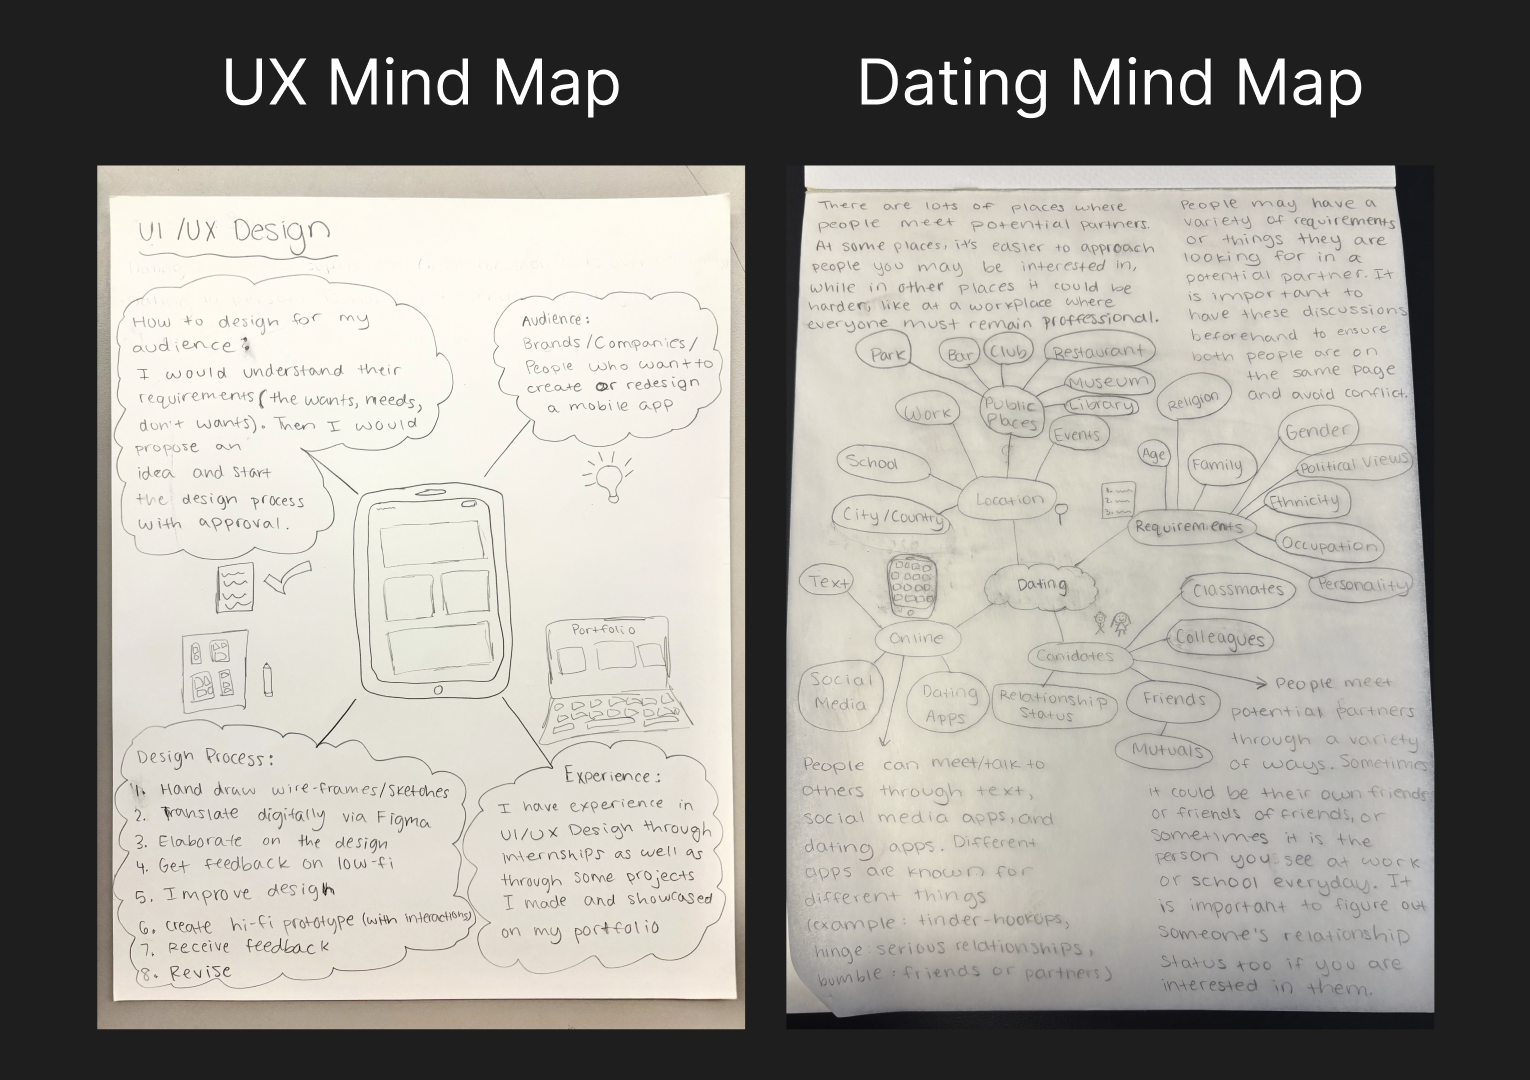 UX Mind Map
Dating Mind Map
UI/UX Design
How to design for my
audience:
I would understand their
requirements (the wants, needs,
don't wants). Then I would
propose an
idea and start
the design process
with approval.
Audience:
Brands/Companies/
People who want to
create or redesign
a mobile app
Portfolio
Design Process:
1. Hand draw wire-frames/sketches
2. Translate digitally via Figma
3. Elaborate on the design
4. Get feedback on low-fi
5. Improve design
6. Create hi-fi prototype (with interactions)
7. Receive feedback
8. Revise
Experience:
I have experience in
UI/UX Design through
internships as well as
through some projects
I made and showcased
on my portfolio
There are lots of places where
people meet potential partners.
At some places, it's easier to approach
people you may be interested in,
while in other places it could be
harder, like at a workplace where
everyone must remain proffessional.
People may have a
variety of requirements
or things they are
looking for in a
potential partner. It
is important to
have these discussions
beforehand to ensure
both people are on
the same page
and avoid conflict.
Park
Bar
Club
Restaurant
Museum
Library
Events
Public
Places
Work
School
City/Country
Location
Religion
Age
Family
Gender
Political Views
Ethnicity
Occupation
Personality
1.
2.
3.
Requirements
Dating
Text
Online
Social
Media
Dating
Apps
Canidates
Classmates
Colleagues
Relationship
Status
Friends
Mutuals
People can meet/talk to
others through text,
social media apps, and
dating apps. Different
apps are known for
different things
(example: tinder-hookups,
hinge: serious relationships,
bumble: friends or partners)
People meet
potential partners
through a variety
of ways. Sometimes
it could be their own friends
or friends of friends, or
sometimes it is the
person you see at work
or school everyday. It
is important to figure out
someone's relationship
status too if you are
interested in them.